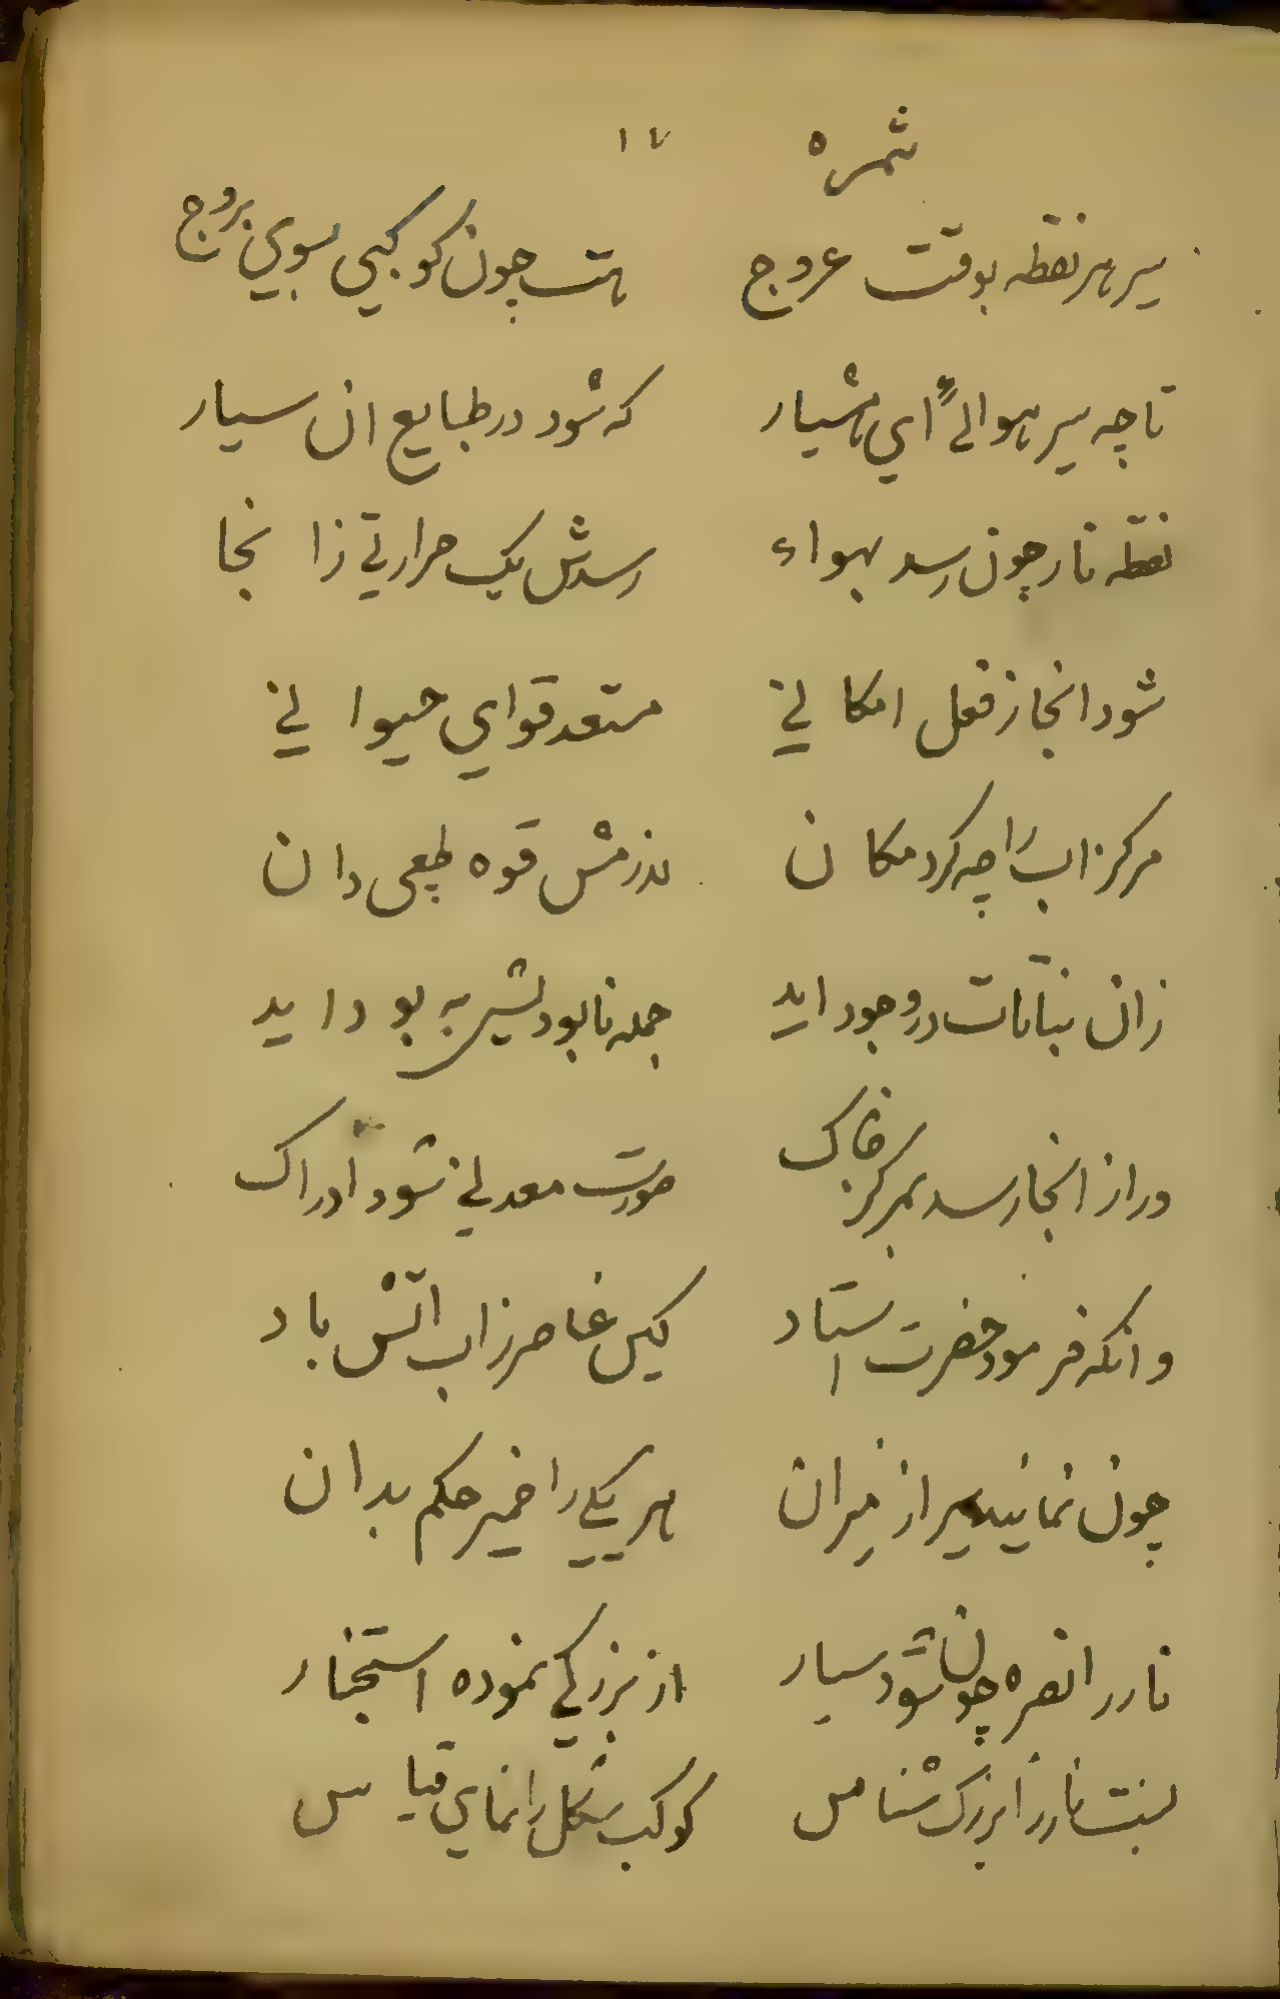 ثمره ۱۷
سیر هر نقطه بوقت عروج هست چون کوکبی بسوی بروج
تا چه سیر هوا اي هشیار که شود در طبایع ان سیار
نقطه نار چون رسد بهواء رسدش یک حرارتی زانجا
شود انجا ز فعل امکانی مستعد قوای حیوانی
مرکز اب را چه کرد مکان قوه طبعی دان
زان نباتات در وجود اید جمله نابود به بود اید
ور از انجا رسد بمرکز خاک صورت معدنی شود ادراک
وانکه فرمود حضرت استاد کین عناصر ز اب اتش باد
چون نمایند سیر از میزان هر یکی را ضمیر حکم بدان
نار در نصره چون شود سیار از بزرگی نموده استخبار
نسبت نار را بزرک شناس کوکب شکل را نمای قیاس